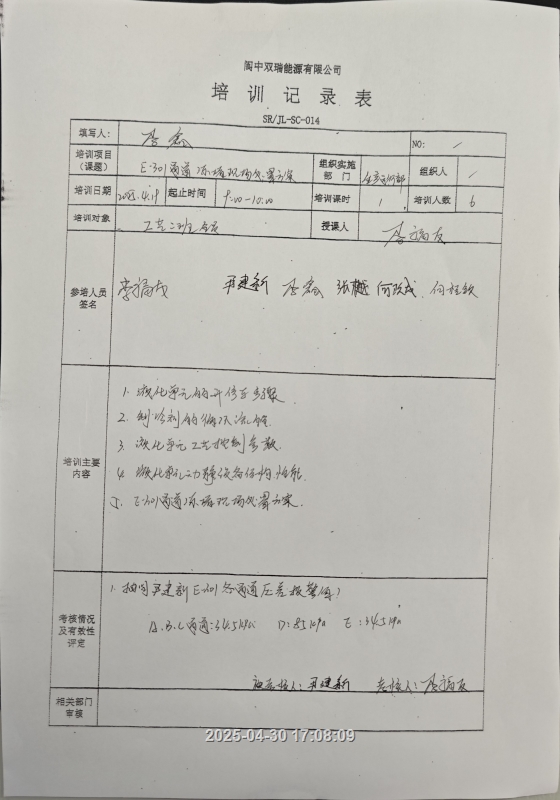 阆中双瑞能源有限公司
培训记录表
SR/JL-SC-014
填写人： 唐鑫 NO： /
培训项目（课题） E-301通道冻堵现场处置方案 组织实施部门 生产运行部 组织人 /
培训日期 2025.4.19 起止时间 9:00-10:00 培训课时 1 培训人数 6
培训对象 工艺二班全员 授课人
参培人员签名 尹建新 唐鑫 张樾 何政成
培训主要内容
1. 液化单元的开停车步骤
2. 制冷剂的循环流程
3. 液化单元工艺控制参数
4. 液化单元动静设备结构性能
5. E-301通道冻堵现场处置方案
考核情况及有效性评定
1. 抽问尹建新E-301各通道压差报警值？
A.B.C通道：34.5kPa D：85kPa E：34.5kPa
被考核人：尹建新 考核人：
相关部门审核
2025-04-30 17:08:09